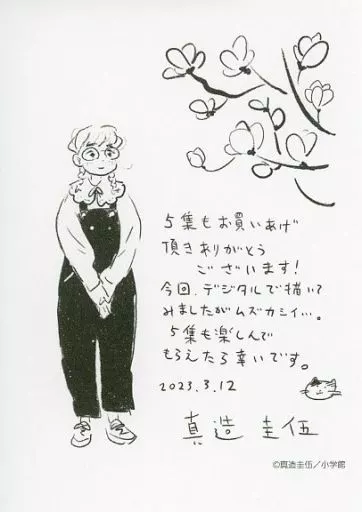 5集もお買いあげ
頂きありがとう
ございます!
今回、デジタルで描いて
みましたがムズカシイ…。
5集も楽しんで
もらえたら幸いです。
2023.3.12
真造 圭伍
©真造圭伍/小学館